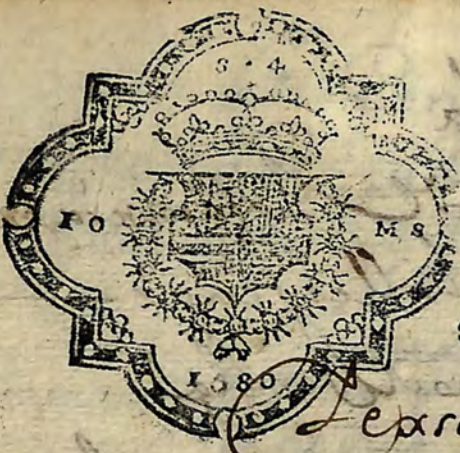 S · 4
10 MS
1680